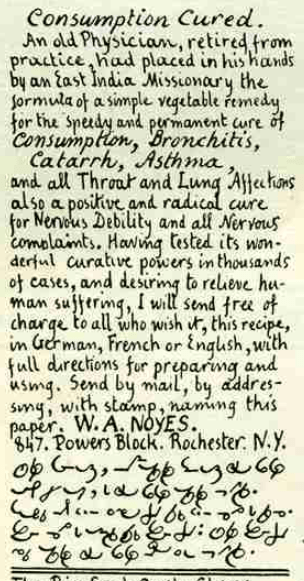 Consumption Cured.
An old Physician, retired from
practice, had placed in his hands
by an East India Missionary the
formula of a simple vegetable remedy
for the speedy and permanent cure of
Consumption, Bronchitis,
Catarrh, Asthma,
and all Throat and Lung Affections
also a positive and radical cure
for Nervous Debility and all Nervous
complaints. Having tested its won-
derful curative powers in thousands
of cases, and desiring to relieve hu-
man suffering, I will send free of
charge to all who wish it, this recipe,
in German, French or English, with
full directions for preparing and
using. Send by mail, by addres-
sing, with stamp, naming this
paper. W. A. NOYES.
847. Powers Block. Rochester. N.Y.